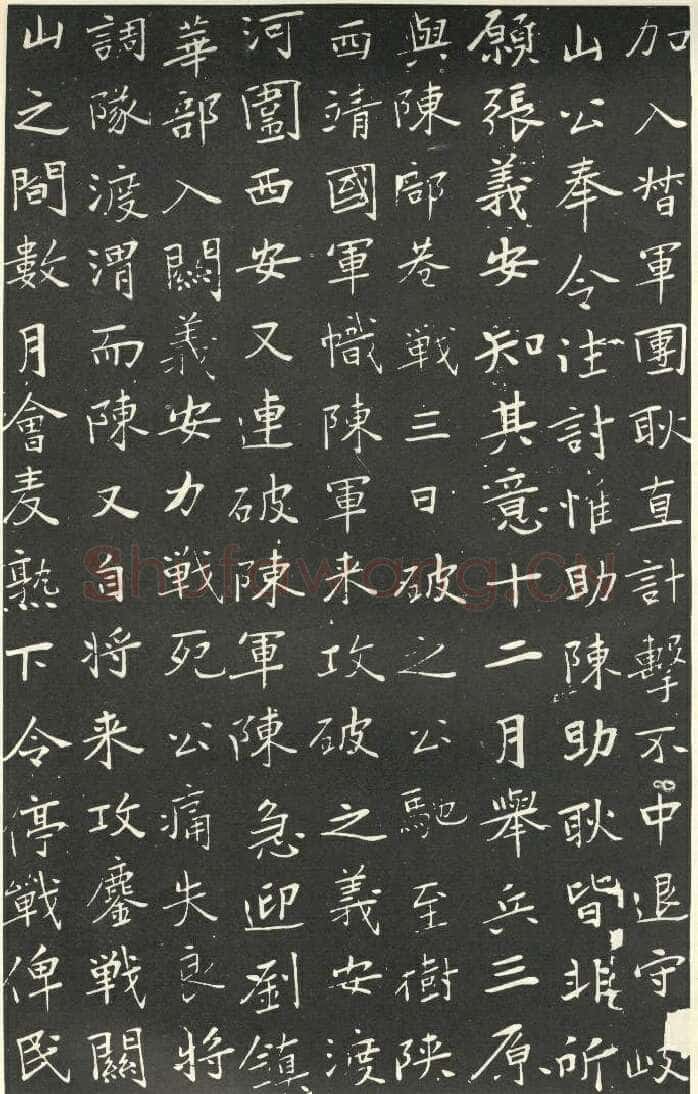 加入督軍團耿直計擊不中退守岐
山公奉令往討惟助陳助耿皆非所
願張義安知其意十二月舉兵三原
與陳部巷戦三日破之公馳至樹陝
西靖國軍幟陳軍来攻破之義安渡
河圍西安又連破陳軍陳急迎劉鎮
華部入關義安力戦死公痛失良将
調隊渡渭而陳又自将来攻鏖戦關
山之間數月會麦熟下令停戰俾民
Shufawang.CN